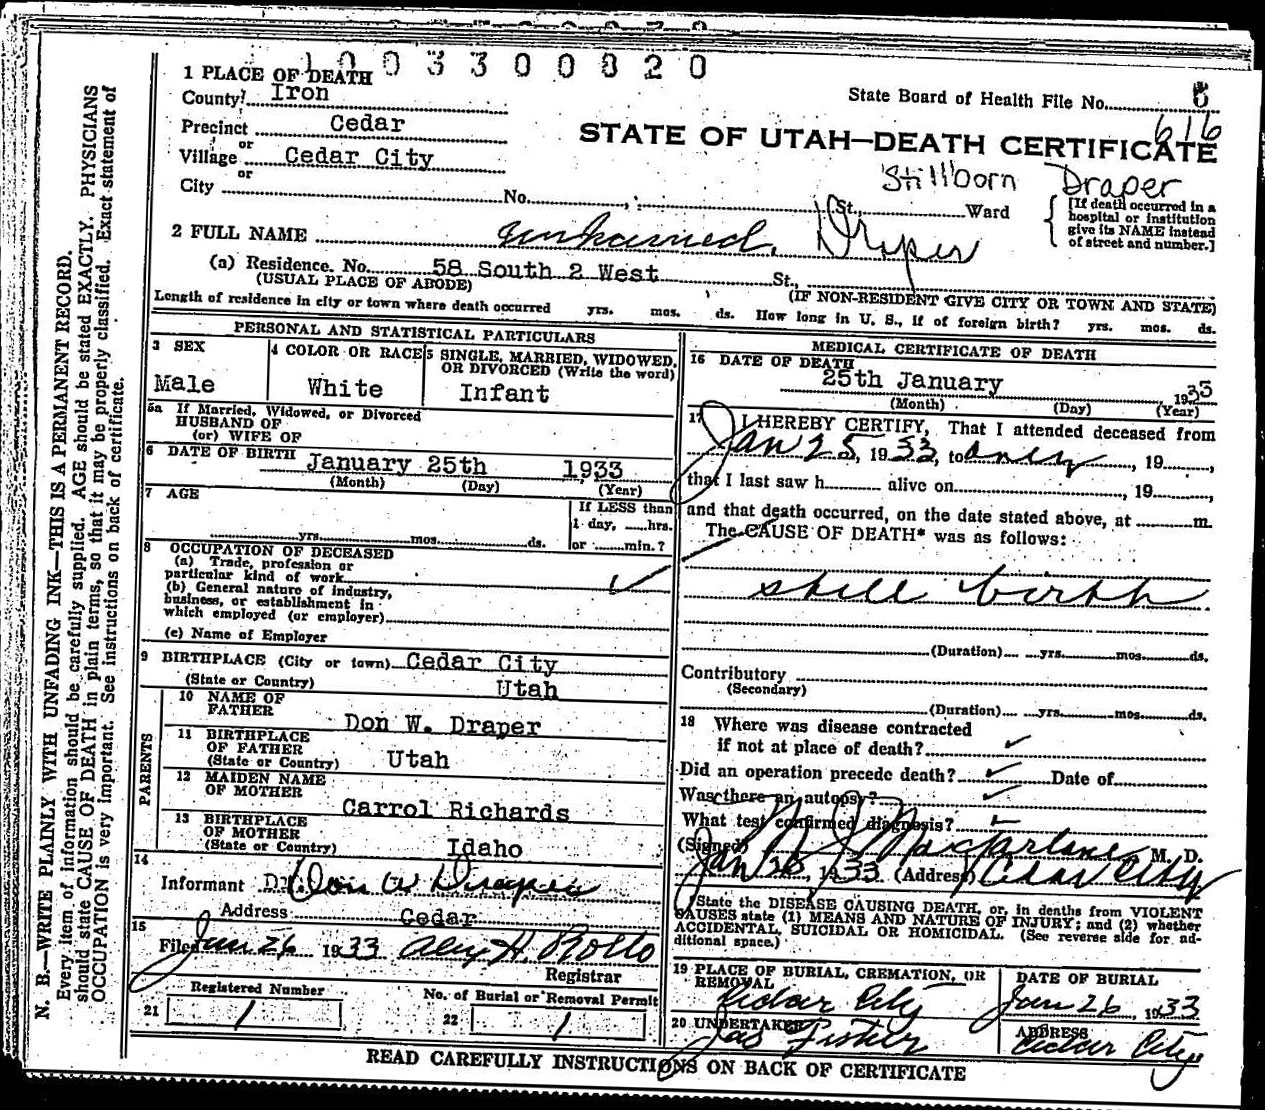 1003300020
1 PLACE OF DEATH
County Iron
State Board of Health File No. 6
616
Precinct Cedar
or
Village Cedar City
or
STATE OF UTAH—DEATH CERTIFICATE
Stillborn Draper
City No. St., Ward
[If death occurred in a hospital or institution give its NAME instead of street and number.]
2 FULL NAME unnamed, Draper
(a) Residence. No. 58 South 2 West St.,
(USUAL PLACE OF ABODE) (IF NON-RESIDENT GIVE CITY OR TOWN AND STATE)
Length of residence in city or town where death occurred yrs. mos. ds. How long in U. S., if of foreign birth? yrs. mos. ds.
PERSONAL AND STATISTICAL PARTICULARS
3 SEX
Male
4 COLOR OR RACE
White
5 SINGLE, MARRIED, WIDOWED,
OR DIVORCED (Write the word)
Infant
5a If Married, Widowed, or Divorced
HUSBAND OF
(or) WIFE OF
6 DATE OF BIRTH January 25th 1933
(Month) (Day) (Year)
7 AGE
yrs. mos. ds.
If LESS than
1 day, hrs.
or min.?
8 OCCUPATION OF DECEASED
(a) Trade, profession or
particular kind of work
(b) General nature of industry,
business, or establishment in
which employed (or employer)
(c) Name of Employer
9 BIRTHPLACE (City or town) Cedar City
(State or Country) Utah
PARENTS
10 NAME OF
FATHER Don W. Draper
11 BIRTHPLACE
OF FATHER
(State or Country) Utah
12 MAIDEN NAME
OF MOTHER Carrol Richards
13 BIRTHPLACE
OF MOTHER
(State or Country) Idaho
14
Informant Don W Draper
Address Cedar
15
Filed Jan 26 1933 Alex H. Rollo
Registrar
Registered Number
21 1
No. of Burial or Removal Permit
22 1
MEDICAL CERTIFICATE OF DEATH
16 DATE OF DEATH
25th January 1933
(Month) (Day) (Year)
17 I HEREBY CERTIFY, That I attended deceased from
Jan 25, 1933, to only, 19 ,
that I last saw h alive on , 19 ,
and that death occurred, on the date stated above, at m.
The CAUSE OF DEATH* was as follows:
still birth
(Duration) yrs. mos. ds.
Contributory
(Secondary)
(Duration) yrs. mos. ds.
18 Where was disease contracted
if not at place of death?
Did an operation precede death? Date of
Was there an autopsy?
What test confirmed diagnosis?
(Signed) Macfarlane M. D.
Jan 26, 1933 (Address) Cedar City
*State the DISEASE CAUSING DEATH, or, in deaths from VIOLENT
CAUSES state (1) MEANS AND NATURE OF INJURY; and (2) whether
ACCIDENTAL, SUICIDAL OR HOMICIDAL. (See reverse side for ad-
ditional space.)
19 PLACE OF BURIAL, CREMATION, OR
REMOVAL
Cedar City
DATE OF BURIAL
Jan 26, 1933
20 UNDERTAKER
Jas Fisher
ADDRESS
Cedar City
READ CAREFULLY INSTRUCTIONS ON BACK OF CERTIFICATE
N. B.—WRITE PLAINLY WITH UNFADING INK—THIS IS A PERMANENT RECORD.
Every item of information should be carefully supplied. AGE should be stated EXACTLY. PHYSICIANS
should state CAUSE OF DEATH in plain terms, so that it may be properly classified. Exact statement of
OCCUPATION is very important. See instructions on back of certificate.